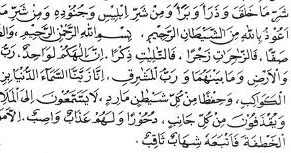 شَرِّ مَا خَلَقَ وَذَرَأَ وَبَرَأَ وَمِنْ شَرِّ اِبْلِيْسَ وَجُنُوْدِهِ وَمِنْ شَرِّ
اَعُوْذُ بِاللهِ مِنَ الشَّيْطَانِ الرَّجِيْمِ. بِسْمِ اللهِ الرَّحْمٰنِ الرَّحِيْمِ
صَفًّا، فَالزّٰجِرٰتِ زَجْرًا، فَالتّٰلِيٰتِ ذِكْرًا. اِنَّ اِلٰهَكُمْ لَوَاحِدٌ. رَبُّ
وَالْاَرْضِ وَمَا بَيْنَهُمَا وَرَبُّ الْمَشَارِقِ. اِنَّا زَيَّنَّا السَّمَآءَ الدُّنْيَا بِزِ
الْكَوَاكِبِ، وَحِفْظًا مِنْ كُلِّ شَيْطٰنٍ مَارِدٍ، لَا يَسَّمَّعُوْنَ اِلَى الْمَلَا
وَيُقْذَفُوْنَ مِنْ كُلِّ جَانِبٍ، دُحُوْرًا وَلَهُمْ عَذَابٌ وَاصِبٌ. اِلَّا مَنْ
الْخَطْفَةَ فَاَتْبَعَهُ شِهَابٌ ثَاقِبٌ.